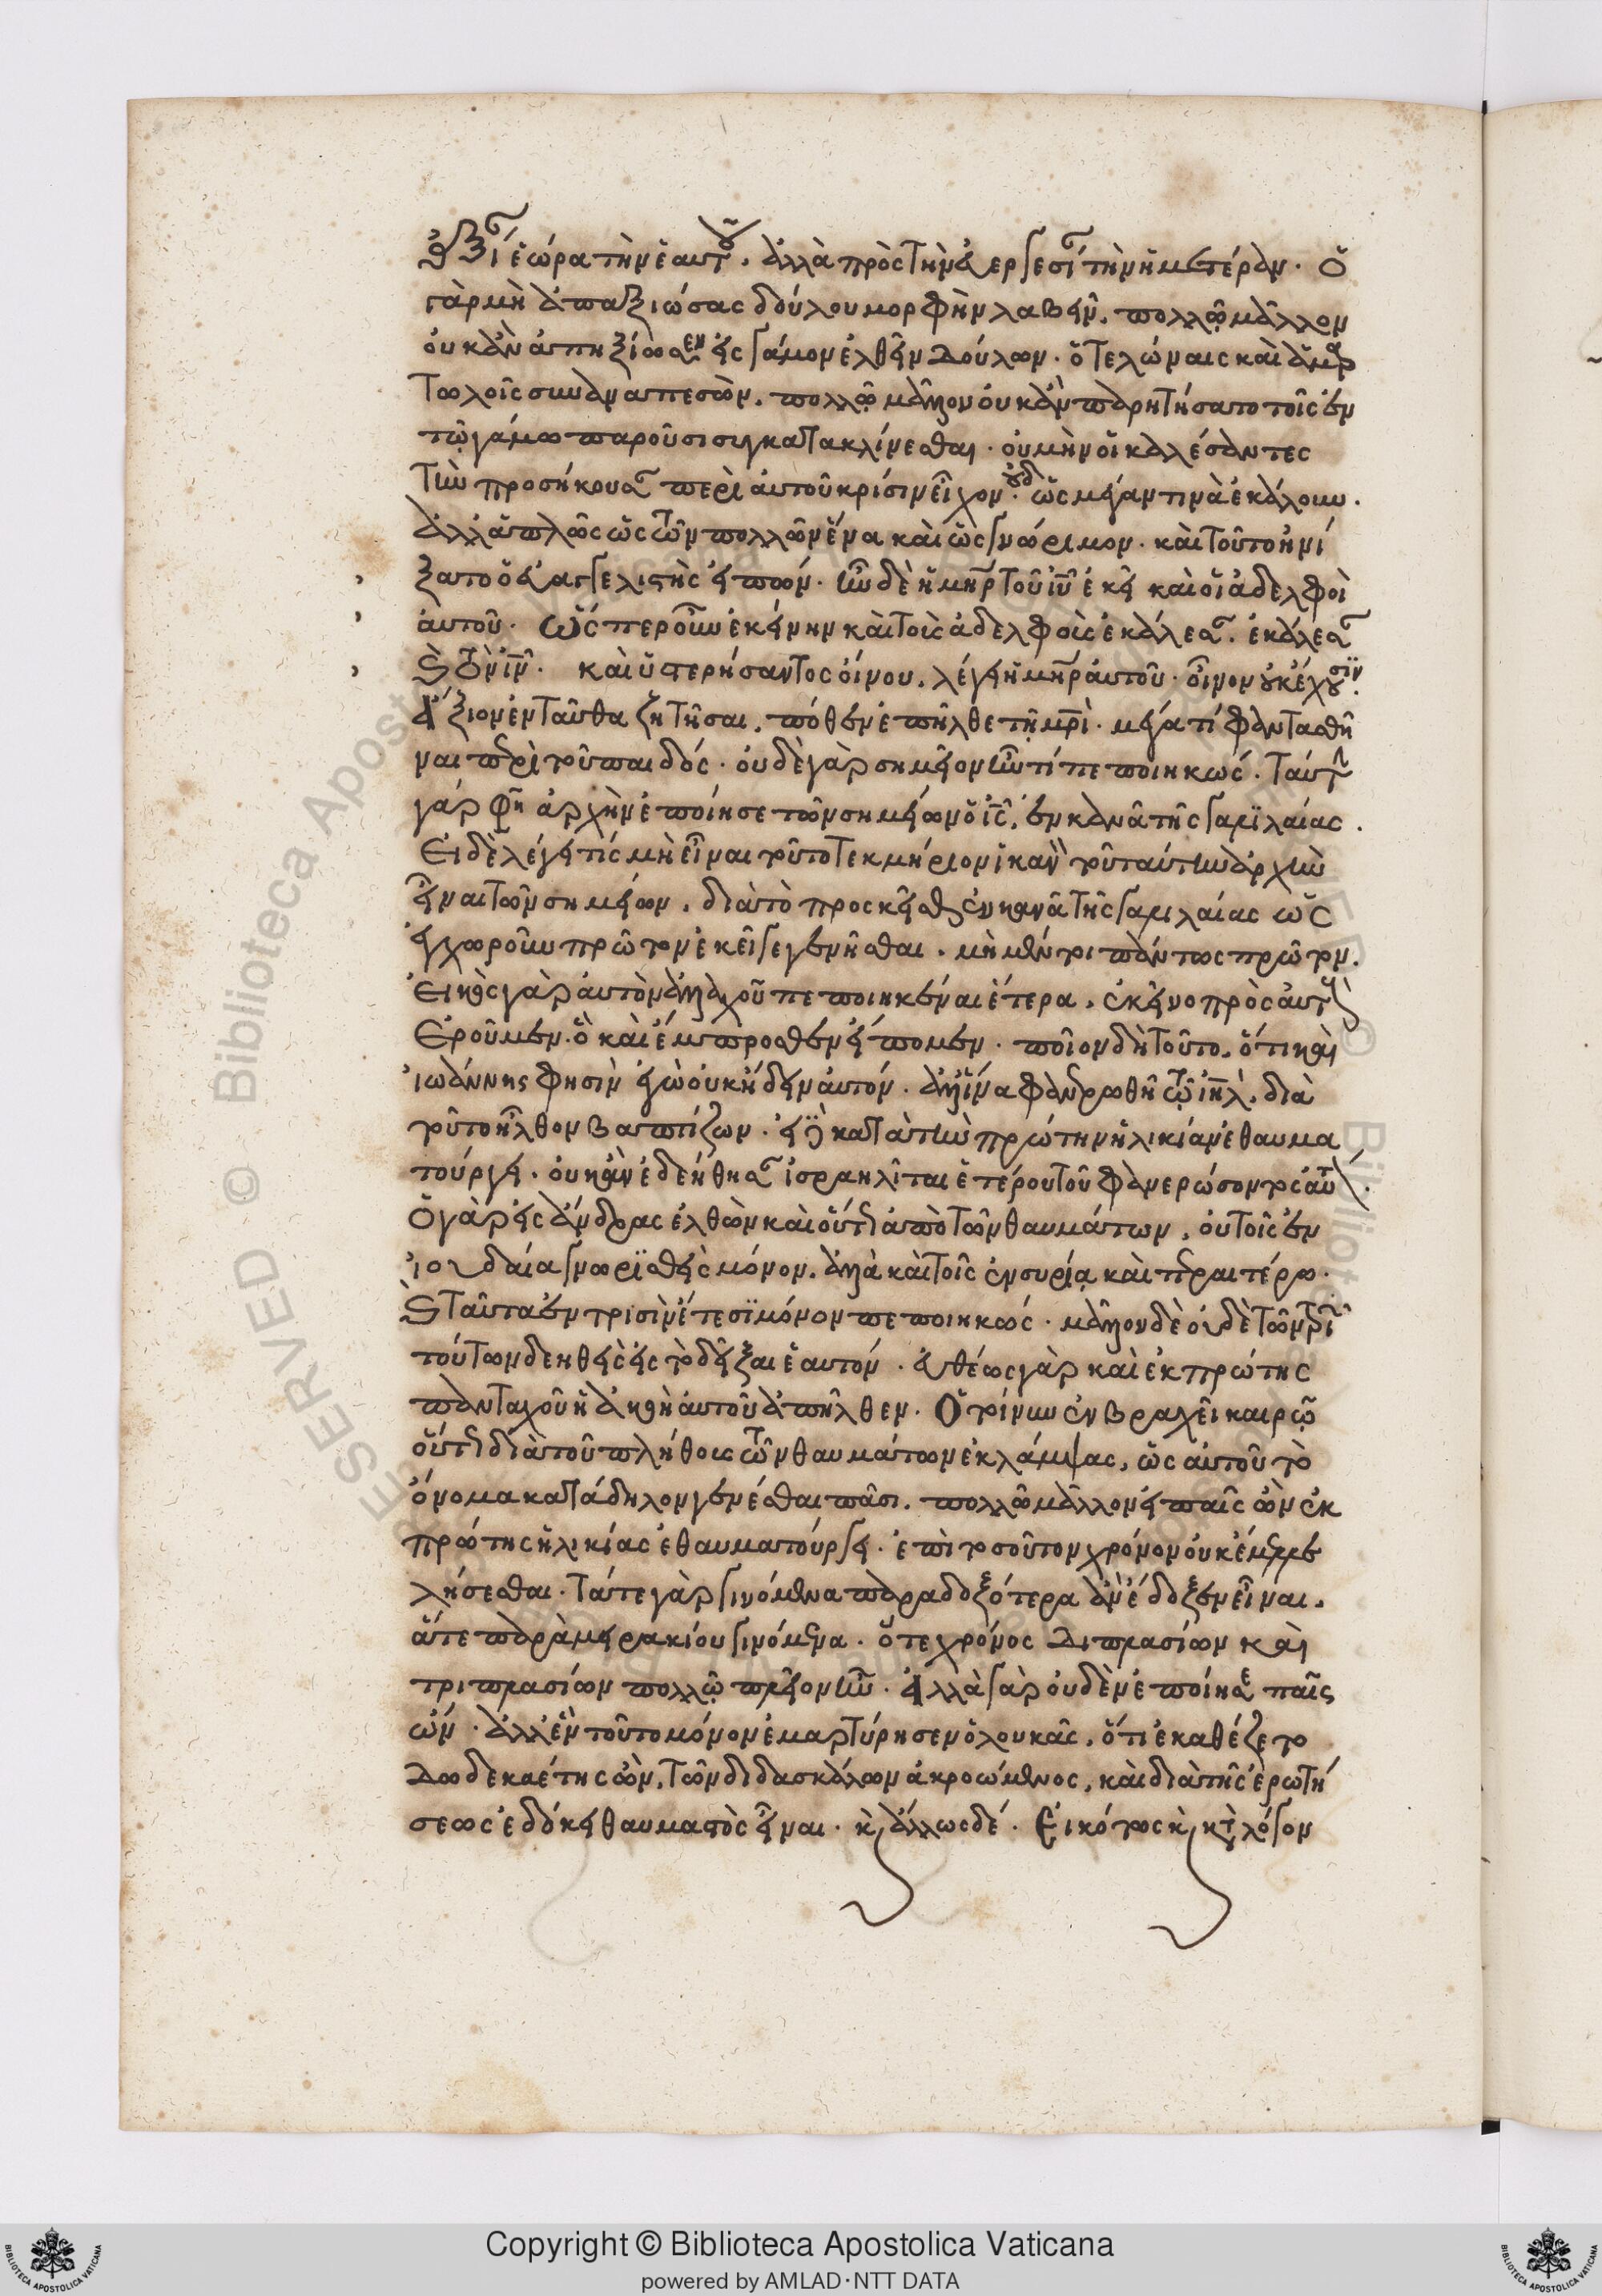 ἀξίαν ἑώρα τὴν ἑαυτοῦ. ἀλλὰ πρὸς τὴν εὐεργεσίαν τὴν ἡμετέραν. Ὁ
γὰρ μὴ ἀπαξιώσας δούλου μορφὴν λαβεῖν. πολλῷ μᾶλλον
οὐκ ἂν ἀπηξίωσεν εἰς γάμον ἐλθεῖν δούλων. ὁ τελώναις καὶ ἁμαρ
τωλοῖς συναναπεσὼν. πολλῷ μᾶλλον οὐκ ἂν παρῃτήσατο τοῖς ἐν
τῷ γάμῳ παροῦσι συγκατακλίνεσθαι. οὐ μὴν οἱ καλέσαντες
τὴν προσήκουσαν περὶ αὐτοῦ κρίσιν εἶχον. οὐδ ὡς μέγαν τινὰ ἐκάλουν.
ἀλλ ἁπλῶς ὡς τῶν πολλῶν ἕνα καὶ ὡς γνώριμον. καὶ τοῦτο ᾐνί
ξατο ὁ εὐαγγελιστὴς εἰπών. ἦν δὲ ἡ μηρ τοῦ ιυ ἐκεῖ καὶ οἱ ἀδελφοὶ
αὐτοῦ. ὥσπερ οὖν ἐκείνην καὶ τοὺς ἀδελφοὺς ἐκάλεσαν. ἐκάλεσαν
καὶ τὸν ιν. καὶ ὑστερήσαντος οἴνου. λέγει ἡ μηρ αὐτοῦ. οἶνον οὐκ ἔχουσιν.
Ἄξιον ἐνταῦθα ζητῆσαι. πόθεν ἐπῆλθε τῇ μρὶ. μέγα τί φαντασθῆ
ναι περὶ τοῦ παιδός. οὐδὲ γὰρ σημεῖον ἦν τί πεποιηκώς. Ταύτην
γάρ φη ἀρχὴν ἐποίησε τῶν σημείων ὁ ις. ἐν κανᾶ τῆς γαλιλαίας.
Εἰ δὲ λέγει τίς μὴ εἶναι τοῦτο τεκμήριον ἱκανὸν τοῦ ταύτην ἀρχὴν
εἶναι τῶν σημείων. διὰ τὸ προσκεῖσθαι ἐν κανᾶ τῆς γαλιλαίας ὡς
ἐγχωροῦν πρῶτον ἐκεῖ γεγενῆσθαι. μὴ μέντοι πάντως πρῶτον.
Εἰκὸς γὰρ αὐτὸν ἀλλαχοῦ πεποιηκέναι ἕτερα. ἐκεῖνο πρὸς αὐτοὺς
Ἐροῦμεν. ὃ καὶ ἔμπροσθεν εἴπομεν. ποῖον δὴ τοῦτο. ὅτι καὶ
ἰωάννης φησὶν ἐγὼ οὐκ ᾔδειν αὐτόν. ἀλλ ἵνα φανερωθῇ τῷ ιηλ. διὰ
τοῦτο ἦλθον βαπτίζων. εἰ δὲ κατὰ τὴν πρώτην ἡλικίαν ἐθαυμα
τούργει. οὐκ ἂν ἐδεήθησαν ἰσραηλῖται ἑτέρου τοῦ φανερώσοντος αὐτόν.
Ὁ γὰρ εἰς ἄνδρας ἐλθὼν καὶ οὕτω ἀπὸ τῶν θαυμάτων. οὐ τοῖς ἐν
ἰουδαίᾳ γνωρισθεὶς μόνον. ἀλλὰ καὶ τοῖς ἐν συρίᾳ καὶ περαιτέρω.
καὶ ταῦτα ἐν τρισὶν ἔτεσι μόνον πεποιηκώς. μᾶλλον δὲ οὐδὲ τῶν τριῶν
τούτων δεηθεὶς εἰς τὸ δεῖξαι ἑαυτόν. εὐθέως γὰρ καὶ ἐκ πρώτης
πανταχοῦ ἡ ἀκοὴ αὐτοῦ ἀπῆλθεν. Ὁ τοίνυν ἐν βραχεῖ καιρῷ
οὕτω διὰ τοῦ πλήθους τῶν θαυμάτων ἐκλάμψας. ὡς αὐτοῦ τὸ
ὄνομα κατάδηλον γενέσθαι πᾶσι. πολλῷ μᾶλλον εἰ παῖς ὢν ἐκ
πρώτης ἡλικίας ἐθαυματούργει. ἐπὶ τοσοῦτον χρόνον οὐκ ἔμελλε
λήσεσθαι. τά τε γὰρ γινόμενα παραδοξότερα ἂν ἔδοξεν εἶναι.
ἅτε παρὰ μειρακίου γινόμενα. ὅ τε χρόνος διπλασίων καὶ
τριπλασίων πολλῷ πλεῖον ἦν. Ἀλλὰ γὰρ οὐδὲν ἐποίησε παῖς
ὤν. ἀλλ ἓν τοῦτο μόνον ἐμαρτύρησεν ὁ λουκᾶς. ὅτι ἐκαθέζετο
δωδεκαέτης ὢν. τῶν διδασκάλων ἀκροώμενος. καὶ διὰ τῆς ἐρωτή
σεως ἐδόκει θαυμαστὸς εἶναι. καὶ ἄλλως δέ. Εἰκότως καὶ κατὰ λόγον
Copyright © Biblioteca Apostolica Vaticana
powered by AMLAD·NTT DATA